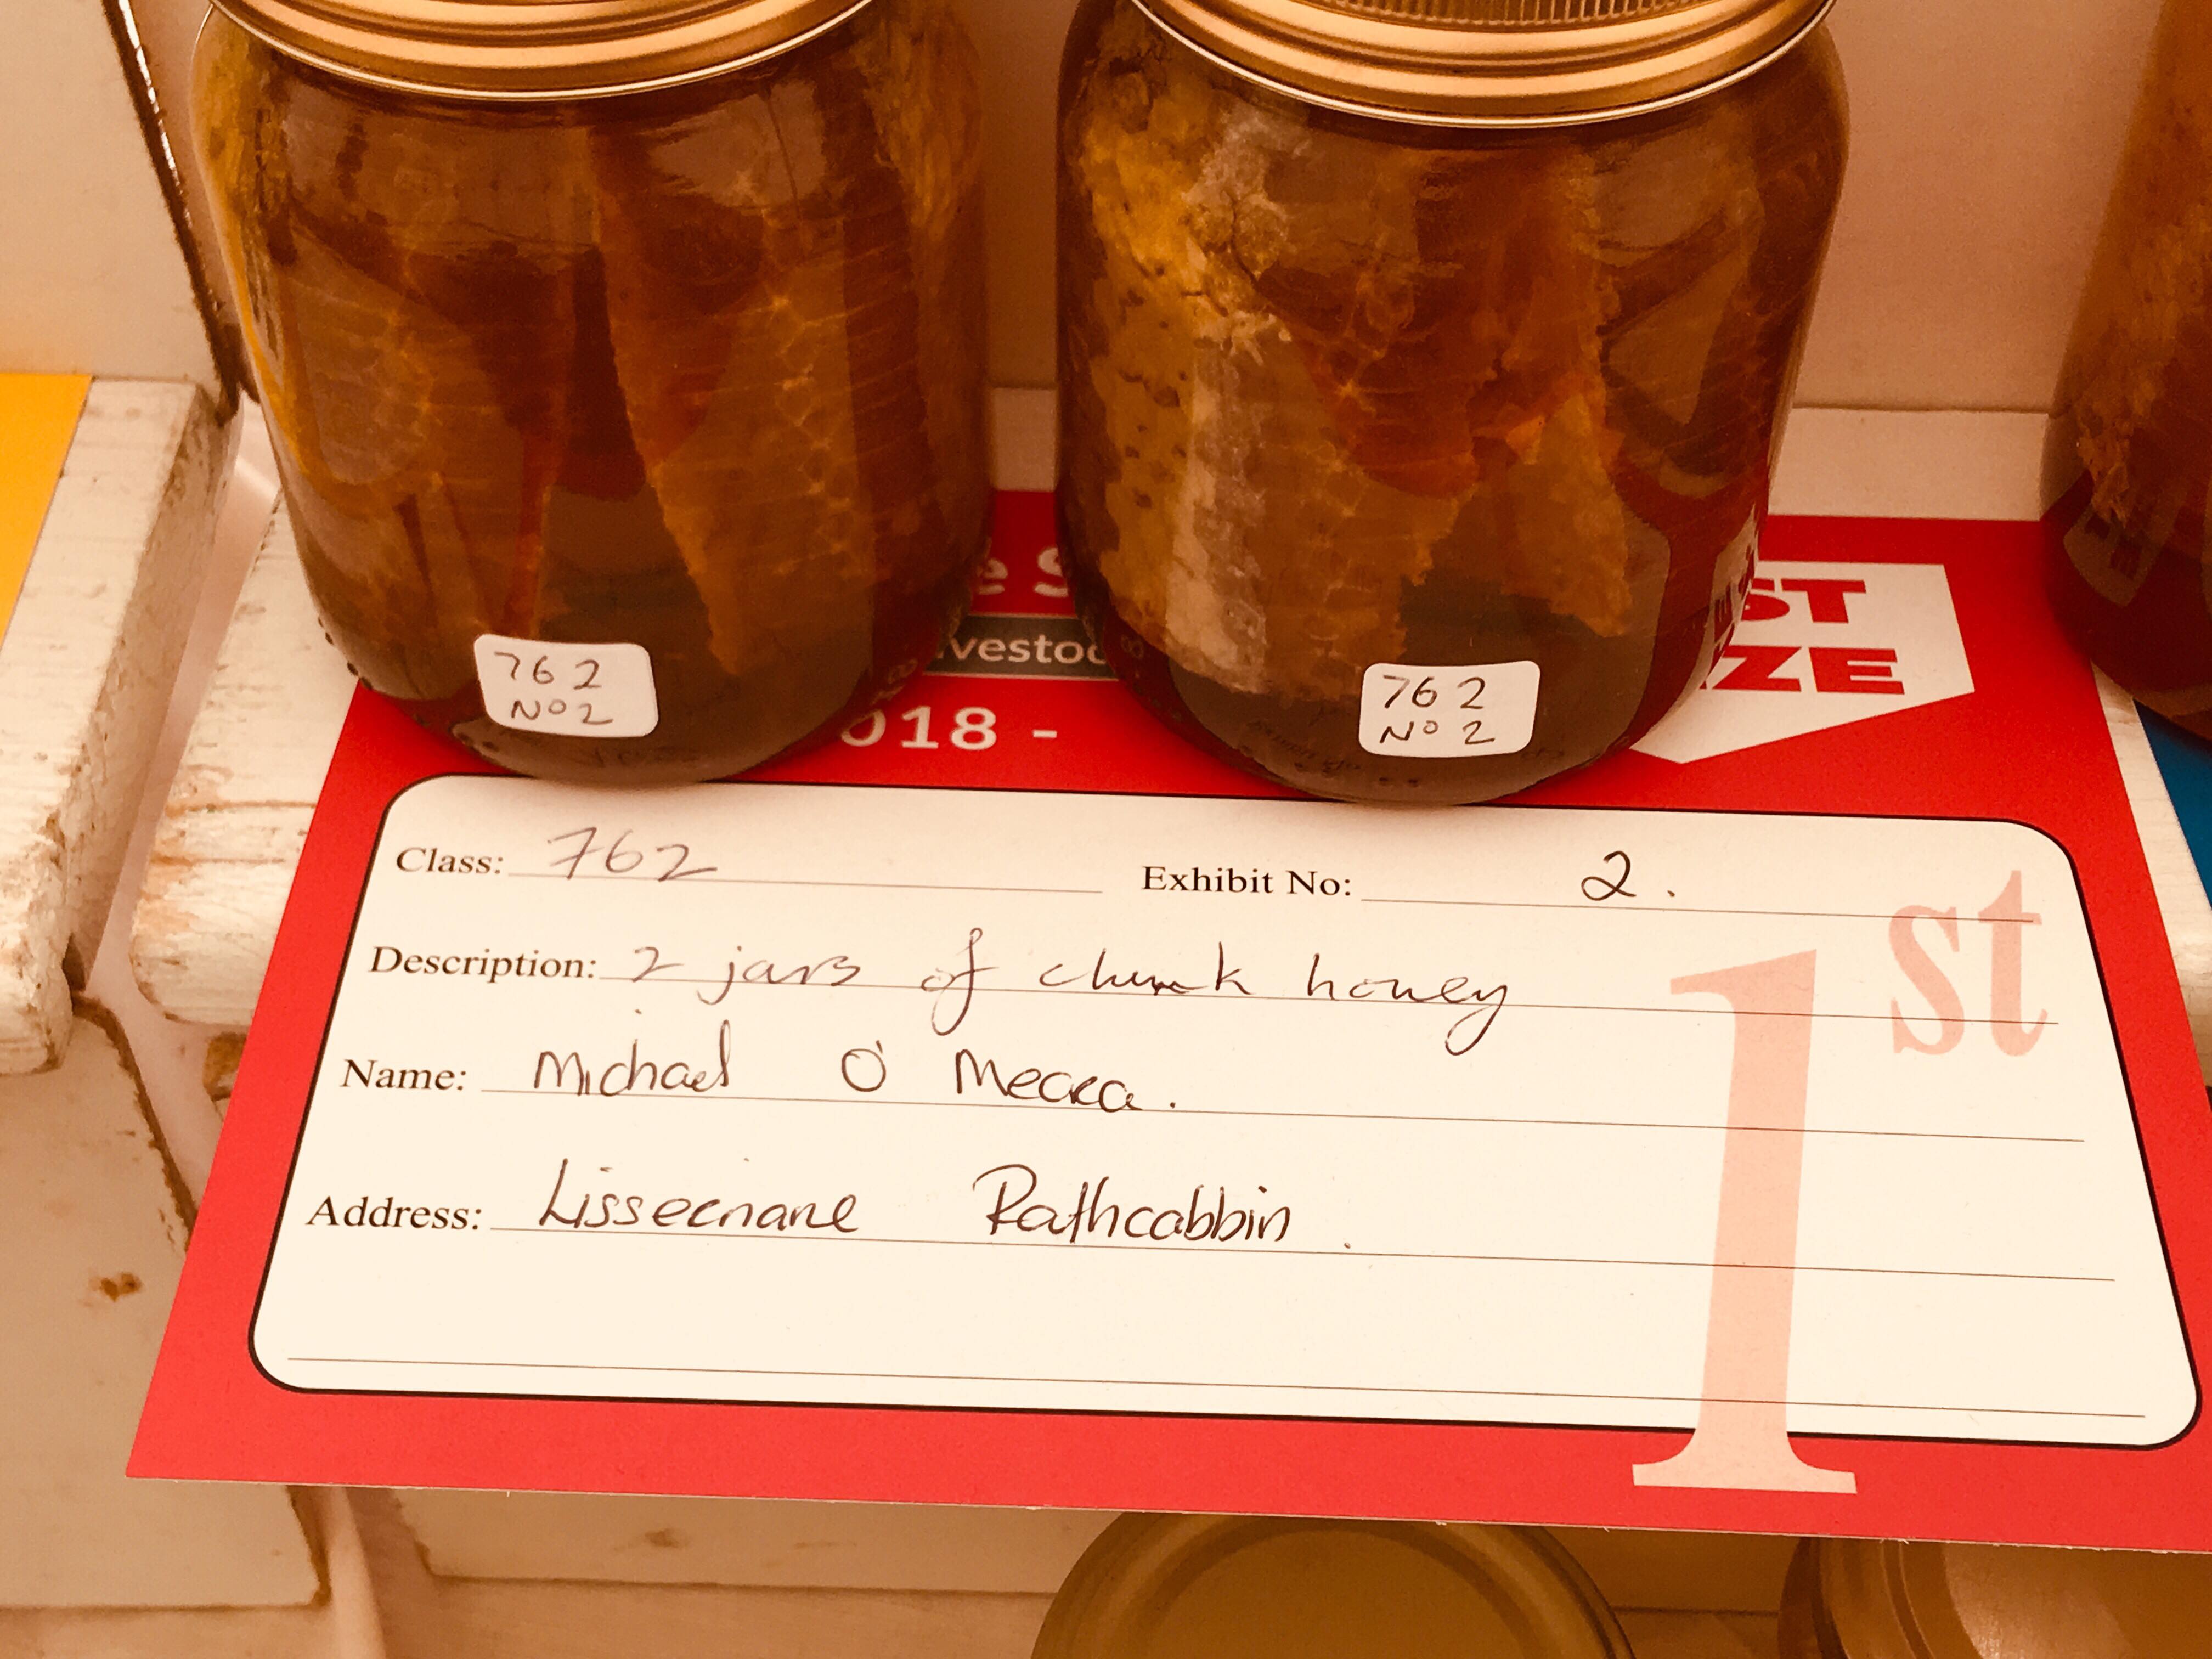 762
No 2
762
No 2
018 -
ST
ZE
Class: 762 Exhibit No: 2.
Description: 2 jars of chunk honey
Name: Michael O' Meara.
Address: Rathcabbin.
1st